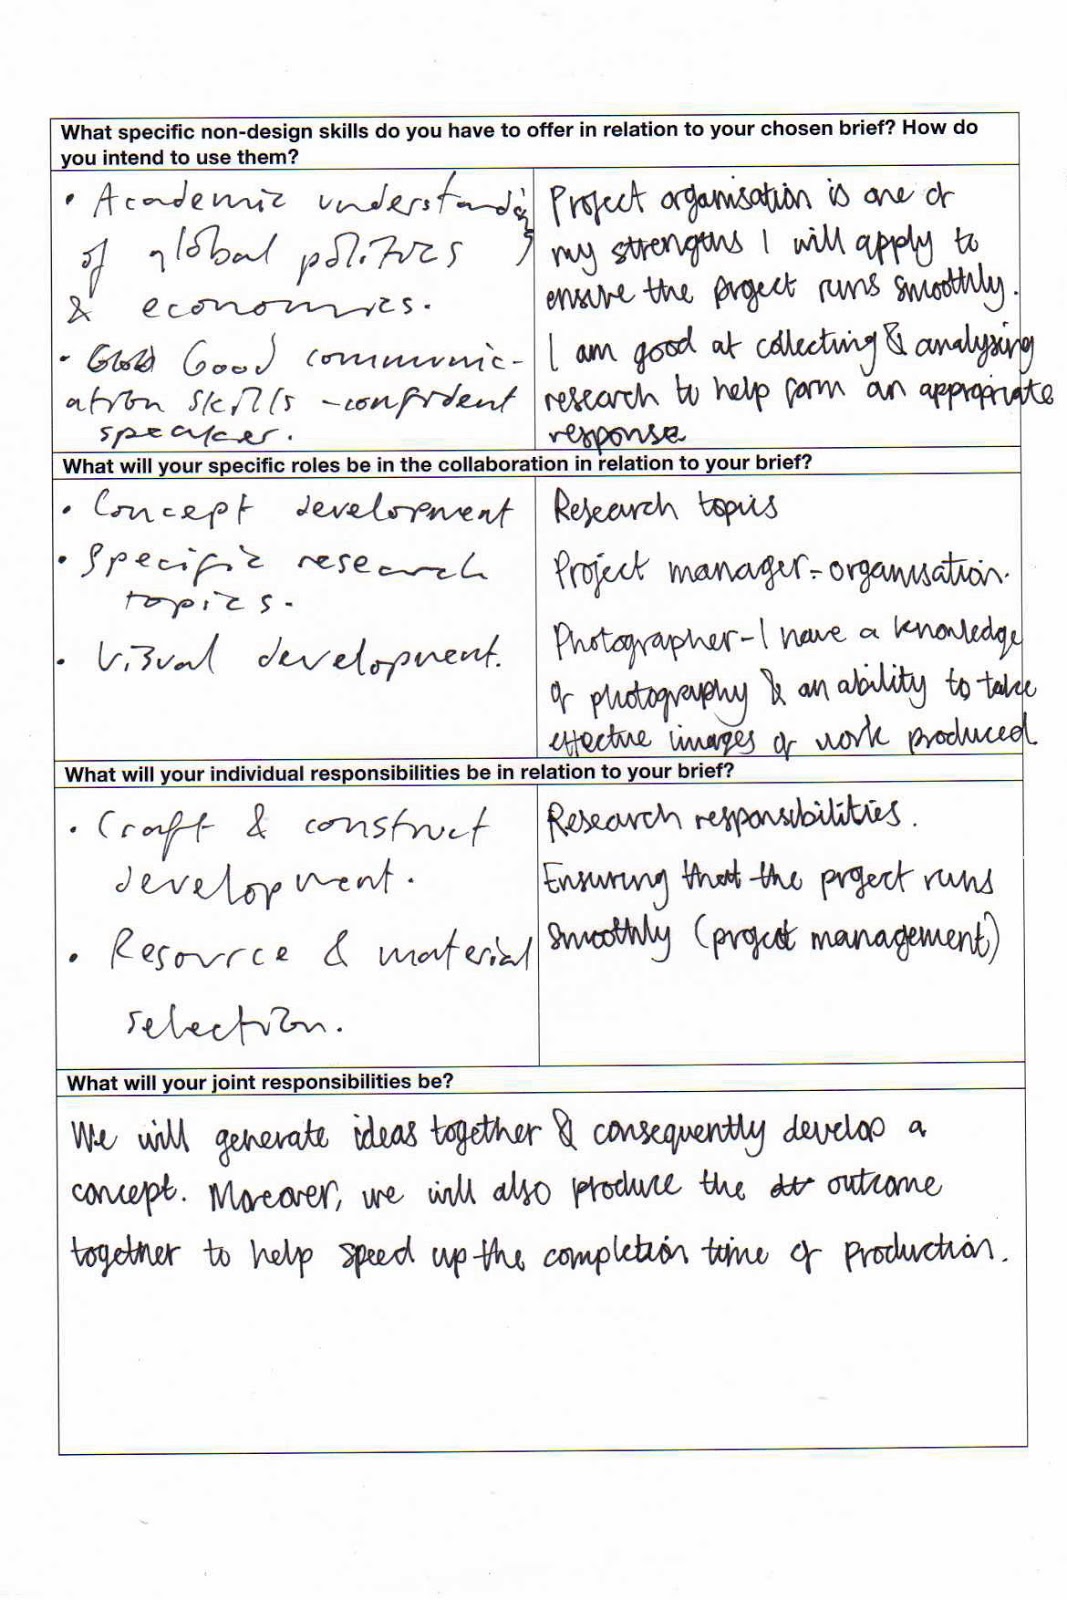 What specific non-design skills do you have to offer in relation to your chosen brief? How do
you intend to use them?
• Academic understanding
of global politics
& economics.
• Good communic-
ation skills - confident
speaker.
Project organisation is one of
my strengths I will apply to
ensure the project runs smoothly.
I am good at collecting & analysing
research to help form an appropriate
response
What will your specific roles be in the collaboration in relation to your brief?
• Concept development
• Specific research
topics.
• Visual development.
Research topics
Project manager - organisation.
Photographer - I have a knowledge
of photography & an ability to take
effective images of work produced.
What will your individual responsibilities be in relation to your brief?
• Craft & construct
development.
• Resource & material
selection.
Research responsibilities.
Ensuring that the project runs
smoothly (project management)
What will your joint responsibilities be?
We will generate ideas together & consequently develop a
concept. Moreover, we will also produce the outcome
together to help speed up the completion time of production.